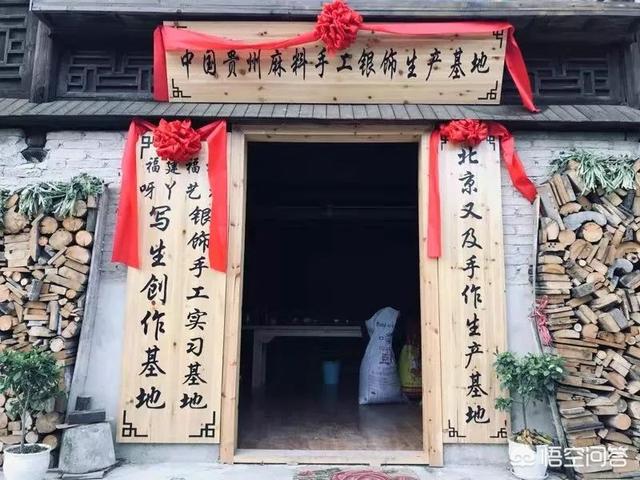 中国贵州麻料手工银饰生产基地
福建
呀丫
写生创作基地
福
艺
银饰手工实习基地
北京又及手作生产基地
悟空问答